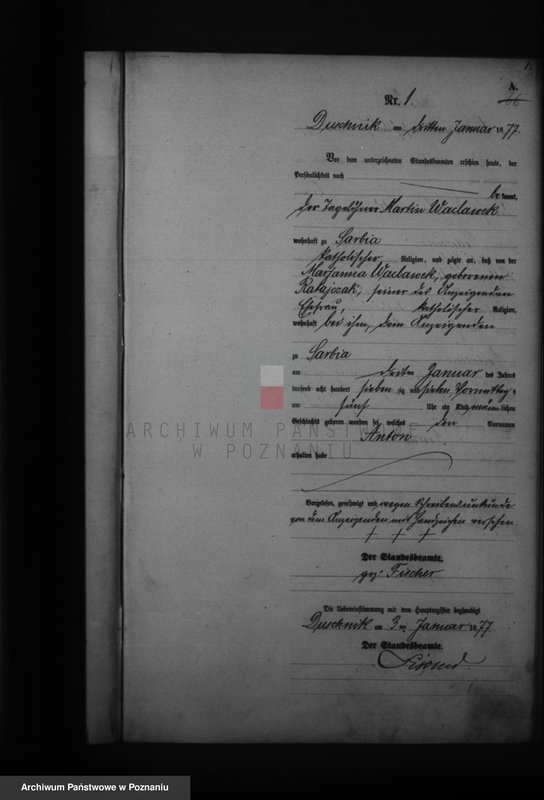 A.
Nr. 1.
Duschnik am dritten Januar 1877.
Vor dem unterzeichneten Standesbeamten erschien heute, der
Persönlichkeit nach
be kannt,
der Tagelöhner Martin Waclawek
wohnhaft zu Sarbia
katholischer Religion, und zeigte an, daß von der
Maryanna Waclawek, geborenen
Ratajczak, seiner des Anzeigenden
Ehefrau, katholischer Religion,
wohnhaft bei ihm, dem Anzeigenden
zu Sarbia
am dritten Januar des Jahres
tausend acht hundert sieben zig und sieben Vormittags
um fünf Uhr ein Kind männlichen
Geschlechts geboren worden sei, welches den Vornamen
Anton
erhalten habe
Vorgelesen, genehmigt und wegen Schreibensunkunde
von dem Anzeigenden mit Handzeichen versehen.
+ + +
Der Standesbeamte.
gez: Fischer
Die Uebereinstimmung mit dem Hauptregister beglaubigt
Duschnik am 3ten Januar 1877
Der Standesbeamte.
ARCHIWUM PAŃSTWOWE
W POZNANIU
Archiwum Państwowe w Poznaniu